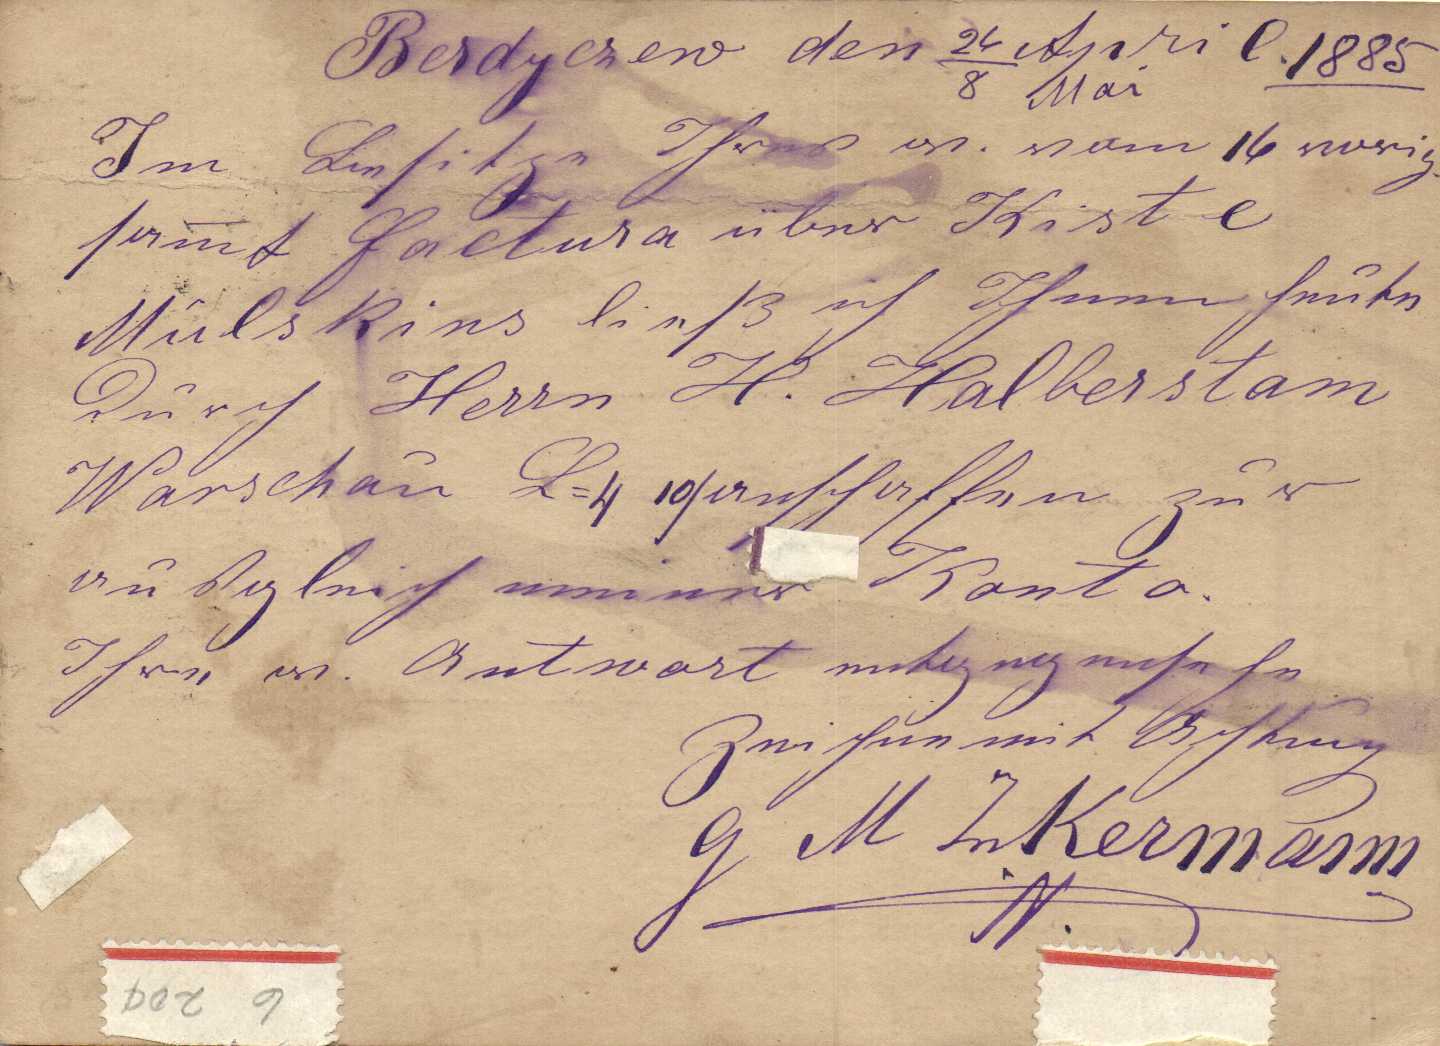 Berdyczew den 26/8 April/Mai 1885
Im Besitze Ihres w. vom 16 vorig.
samt Factura über Kiste
Mulskins ließ ich Ihnen heute
Durch Herrn H. Halberstam
Warschau L=4 10/ anschaffen zur
ausgleich meines Konto.
Ihre w. Antwort entgegensehe
Zeichne mit Achtung
G M Inkermann
N.
6 209